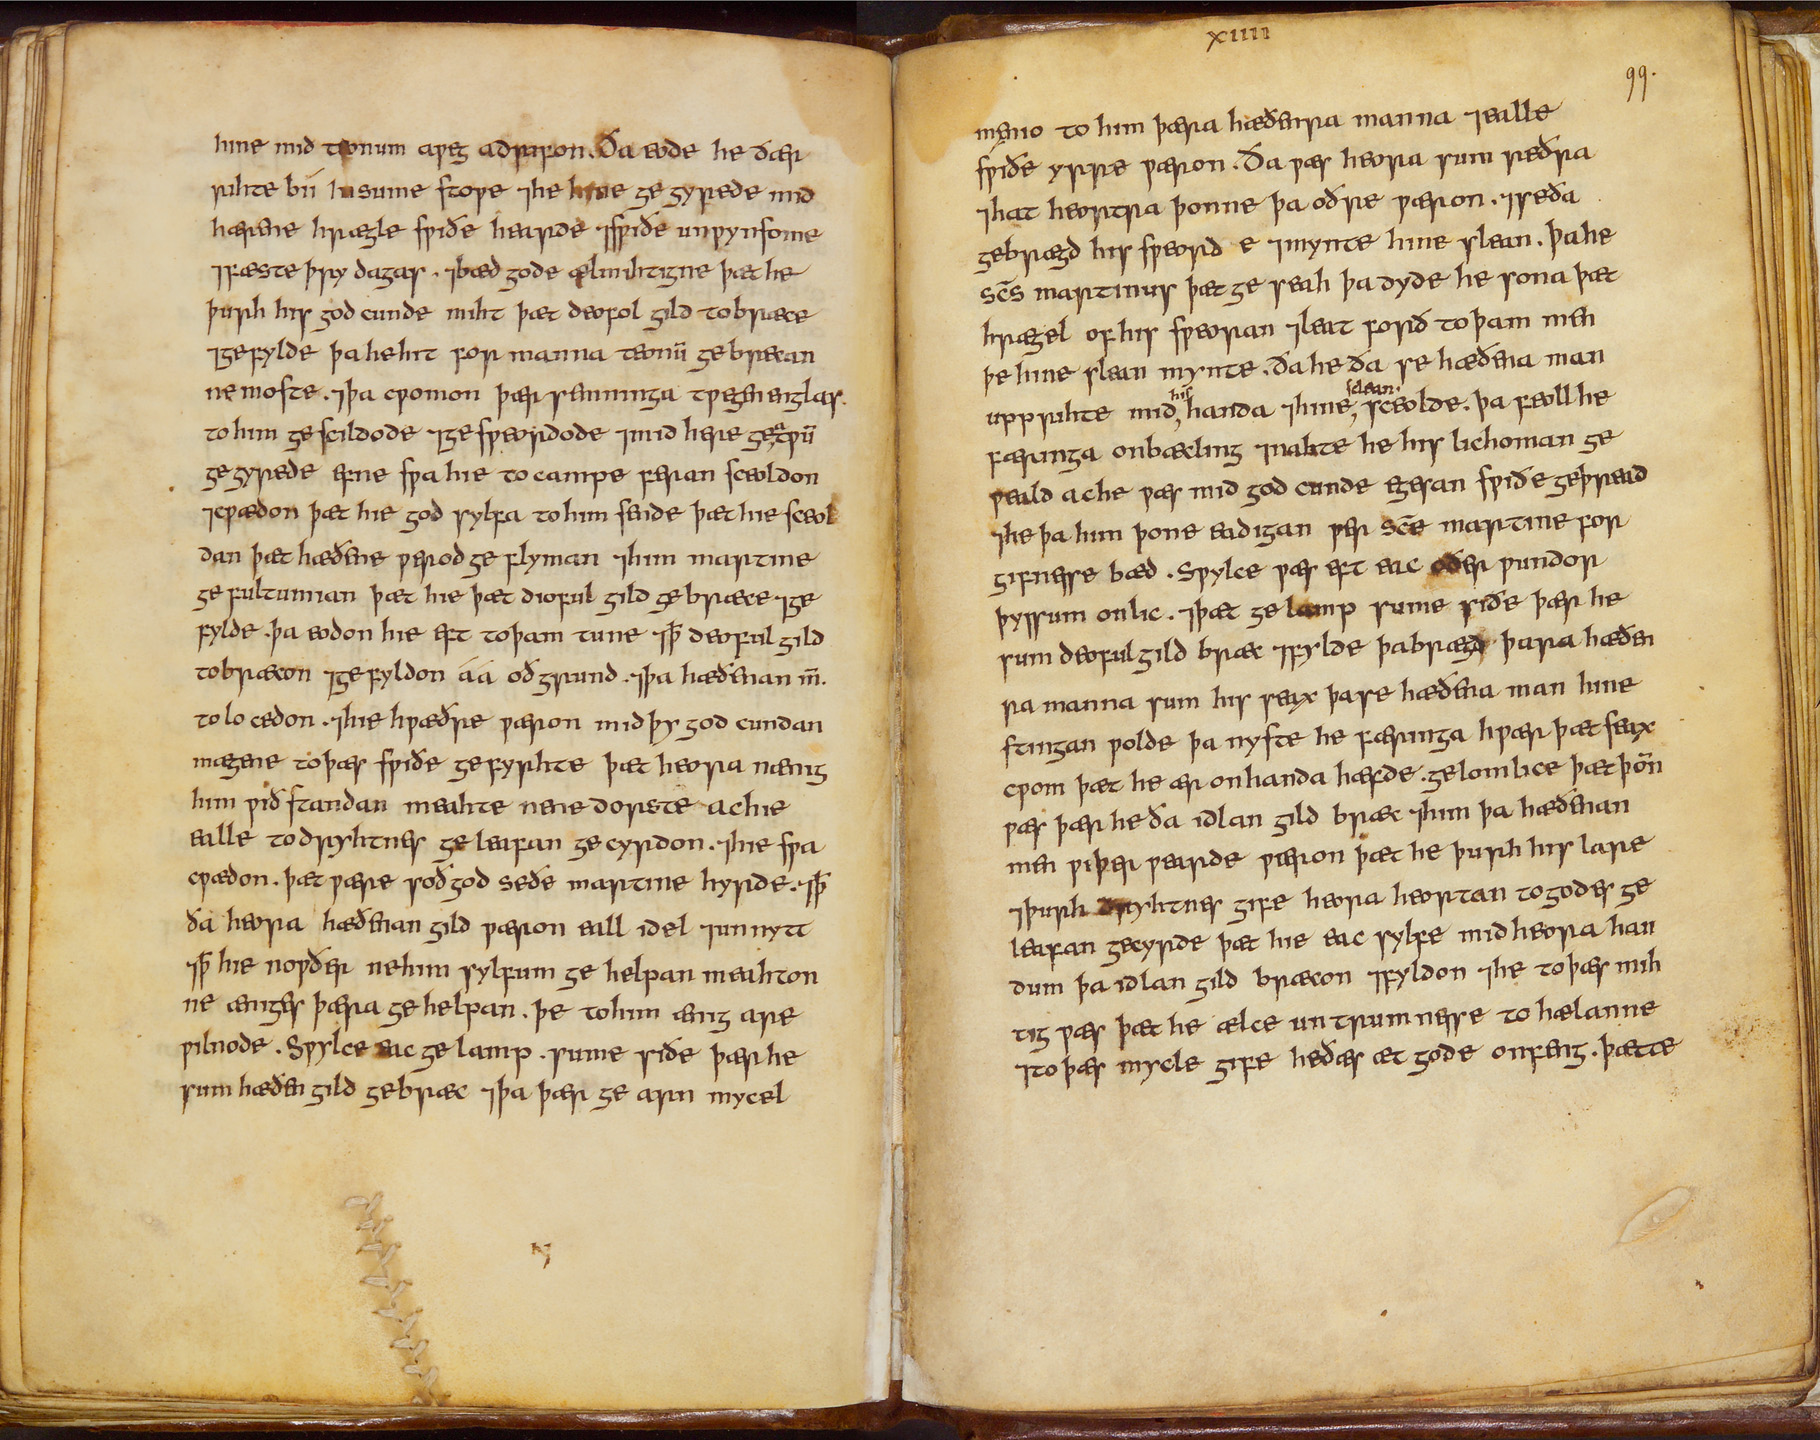 hine mid teonum aƿeg adrifon. Ða eode he ðær
rihte bii in sume stoƿe ⁊he hine ge gyrede mid
hærene hrægle sƿiðe heardе ⁊sƿiðe unƿynsome
⁊fæste þry dagas. ⁊bæd gode ælmihtigne þæt he
þurh his god cunde miht þæt deofol gild tobræce
⁊gefylde þa hehit for manna teonū gebrecan
ne moste. ⁊þa cƿomon þær semninga tƿegen englas.
tohim ge scildode ⁊ge sƿeordode ⁊mid here geatƿū
ge gyrede efne sƿa hie to campe feran sceoldon
⁊cƿædon þæt hie god sylfa tohim sende þæt hie sceol
dan þæt hæðene ƿerod ge flyman ⁊him martine
ge fultumian þæt hie þæt dioful gild ge bræce ⁊ge
fylde. þa eodon hie eft toþam tune ⁊ꝥ deoful gild
tobræcon ⁊ge fyldon áá oð grund. ⁊þa hæðenan m̄.
tolo cedon. ⁊hie hƿæðre ƿæron mid þy god cundan
mægene to þæs sƿiðe ge fyrhte þæt heora nænig
him ƿið standan meahte nene dorste ac hie
ealle to dryhtnes ge leafan ge cyrdon. ⁊hie sƿa
cƿædon. þæt ƿære soð god seðe martine hyrde. ⁊ꝥ
ða heora hæðenan gild ƿæron eall idel ⁊unnytt
⁊ꝥ hie noƿðer nehim sylfum ge helpan meahton
ne ænges þæra ge helpan. þe tohim ænig are
ƿilnode. Sƿylce eac ge lamp. sume siðe þær he
sum hæðen gild ge bræc ⁊þa þær ge arn mycel
xiiii
99.
menio to him þæra hæðenra manna ⁊ealle
sƿiðe yrre ƿæron. Ða ƿæs heora sum reðra
⁊hat heortra þonne þa oðre ƿæron. ⁊seða
gebrægd his sƿeord e ⁊mynte hine slean. þa he
sc̄s martinus þæt ge seah þa dyde he sona þæt
hrægel of his sƿeoran ⁊leat forð toþam men
þe hine slean mynte. ða he ða se hæðena man
upp rihte mid his handa ⁊hine slean sceolde. þa feoll he
færinga onbæcling ⁊nahte he his lichoman ge
ƿeald ac he ƿæs mid god cunde egesan sƿiðe geþread
⁊he þa him þone eadigan ƿer sc̄e martine for
gifnesse bæd. Sƿylce ƿæs eft eac oðer ƿundor
þyssum onlic. ⁊þæt ge lamp sume siðe þær he
sum deoful gild bræc ⁊fylde þa brægd þara hæðen
ra manna sum his seax þa se hæðena man hine
stingan ƿolde þa nyste he færinga hƿær þæt seax
cƿom þæt he ær onhanda hæfde. gelomlice þæt þon̄
ƿæs þær he ða idlan gild bræc ⁊him þa hæðenan
men ƿiþer ƿearde ƿæron þæt he þurh his lare
⁊þurh dryhtnes gife heora heortan togodes ge
leafan gecyrde þæt hie eac sylfe mid heora han
dum þa idlan gild bræcon ⁊fyldon ⁊he toþæs mih
tig ƿæs þæt he ælce un trumnesse to hælanne
⁊to þæs mycle gife heðæs æt gode onfeng. þætte